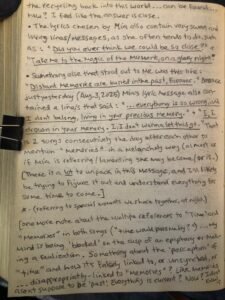 the recycling back into this world... can be found...
now". I feel like the answer is close..
• The lyrics chosen by Min also contain very sweet and
loving lines/messages, as she often tends to do, such
as: "Did you ever think we could be so close?" &
"Take me to the magic of the moment, on a glory night."
• Something else that stood out to me was this line:
"Distant memories are buried in the past, forever." Because
just yesterday (Aug. 3, 2025) Min's lyric message also con-
tained a line that said: "... everything is so wrong, and
I don't belong, living in your precious memory." + "I, I
in your memory. I, I don't wanna let this go." That
is 2 songs consecutively one day after each other to
mention "memories" in a melancholy way (almost as
if Min is referring/lamenting she may become (or is..)
(There is a lot to unpack in this message, and I'll likely
be trying to figure it out and understand everything for
some time to come..)
(referring to special moments we share together, at night)
(One more note about the multiple references to "Time" and
"Memories" in both songs ("time would precisely"?) ... my
Mind is being "beaded" on the cusp of an epiphany or hav-
ing a realization. Something about the "perception" of
"time" and how it's falsely linked to, or unsynched, or
disproportionately linked to "memories"? Like memories
aren't supposed to be 'past'. Everything is current? Now?